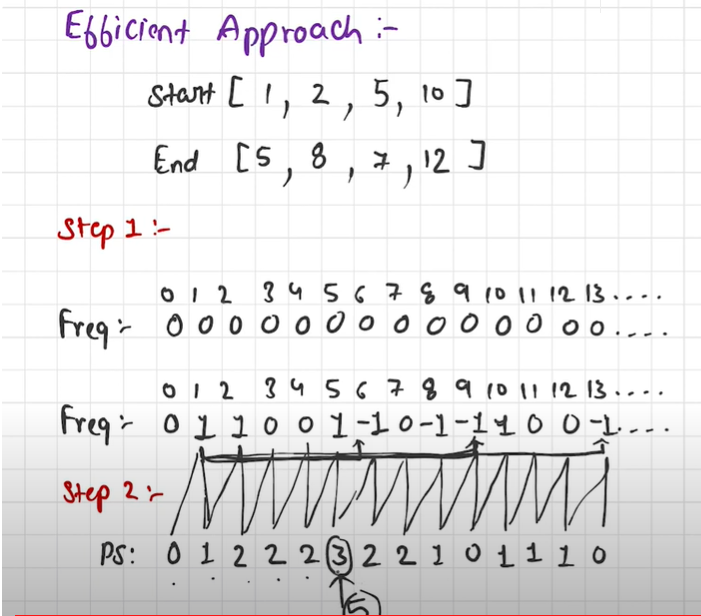 Efficient Approach :-
Start [ 1, 2, 5, 10 ]
End [5, 8, 7, 12 ]
Step 1 :-
0 1 2 3 4 5 6 7 8 9 10 11 12 13....
Freq :- 0 0 0 0 0 0 0 0 0 0 0 0 0 0....
0 1 2 3 4 5 6 7 8 9 10 11 12 13....
Freq :- 0 1 1 0 0 1 -1 0 -1 -1 1 0 0 -1....
Step 2 :-
PS: 0 1 2 2 2 3 2 2 1 0 1 1 1 0
5